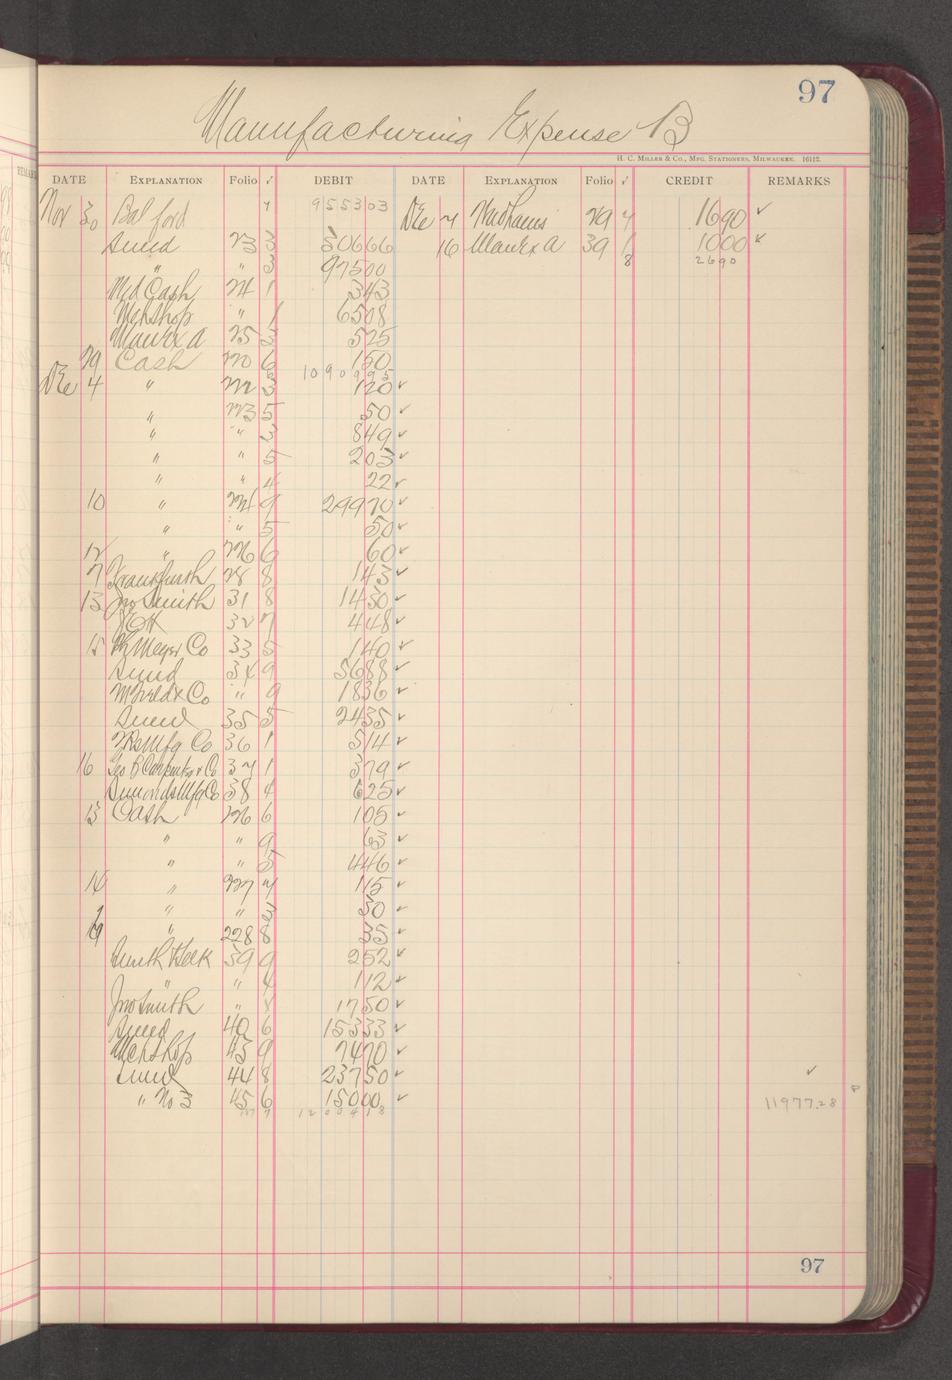 97
Manufacturing Expense B
H. C. MILLER & CO., MFG. STATIONERS, MILWAUKEE. 16112.
DATE EXPLANATION Folio ✓ DEBIT DATE EXPLANATION Folio ✓ CREDIT REMARKS
Nov 30 Bal ford 955303 Dec 7 29 7 1690 ✓
Sund 23 3 30666 16 Man Ex A 39 1 1000 ✓
" " 3 97500 8 2690
Md Cash 24 1 343
Mchshop " 1 6508
Man Ex A 25 3 525
29 Cash 220 6 150
1090995
Dec 4 " 222 3 120 ✓
" 223 5 50 ✓
" " 3 849 ✓
" " 5 203 ✓
" " 4 22 ✓
10 " 224 9 29970 ✓
" " 5 50 ✓
12 " 226 6 60 ✓
7 Frankfurth 28 8 143 ✓
13 Jno Smith 31 8 1430 ✓
32 7 448 ✓
15 Meyer Co 33 5 140 ✓
Sund 34 9 5688 ✓
& Co " 9 1836 ✓
Sund 35 5 2435 ✓
Mfg Co 36 1 514 ✓
16 Geo B Carpenter & Co 37 1 379 ✓
Simonds Mfg Co 38 4 625 ✓
13 Cash 226 6 105 ✓
" " 9 63 ✓
" " 5 446 ✓
14 " 227 7 115 ✓
" " 3 50 ✓
" 228 8 35 ✓
Smith 39 9 252 ✓
" " 4 112 ✓
Jno Smith " 8 1750 ✓
Sund 40 6 15333 ✓
Mchshop 43 9 7470 ✓
Sund 44 8 23750 ✓ ✓
" No 3 45 6 15000 ✓ 11977.28
1200418
97